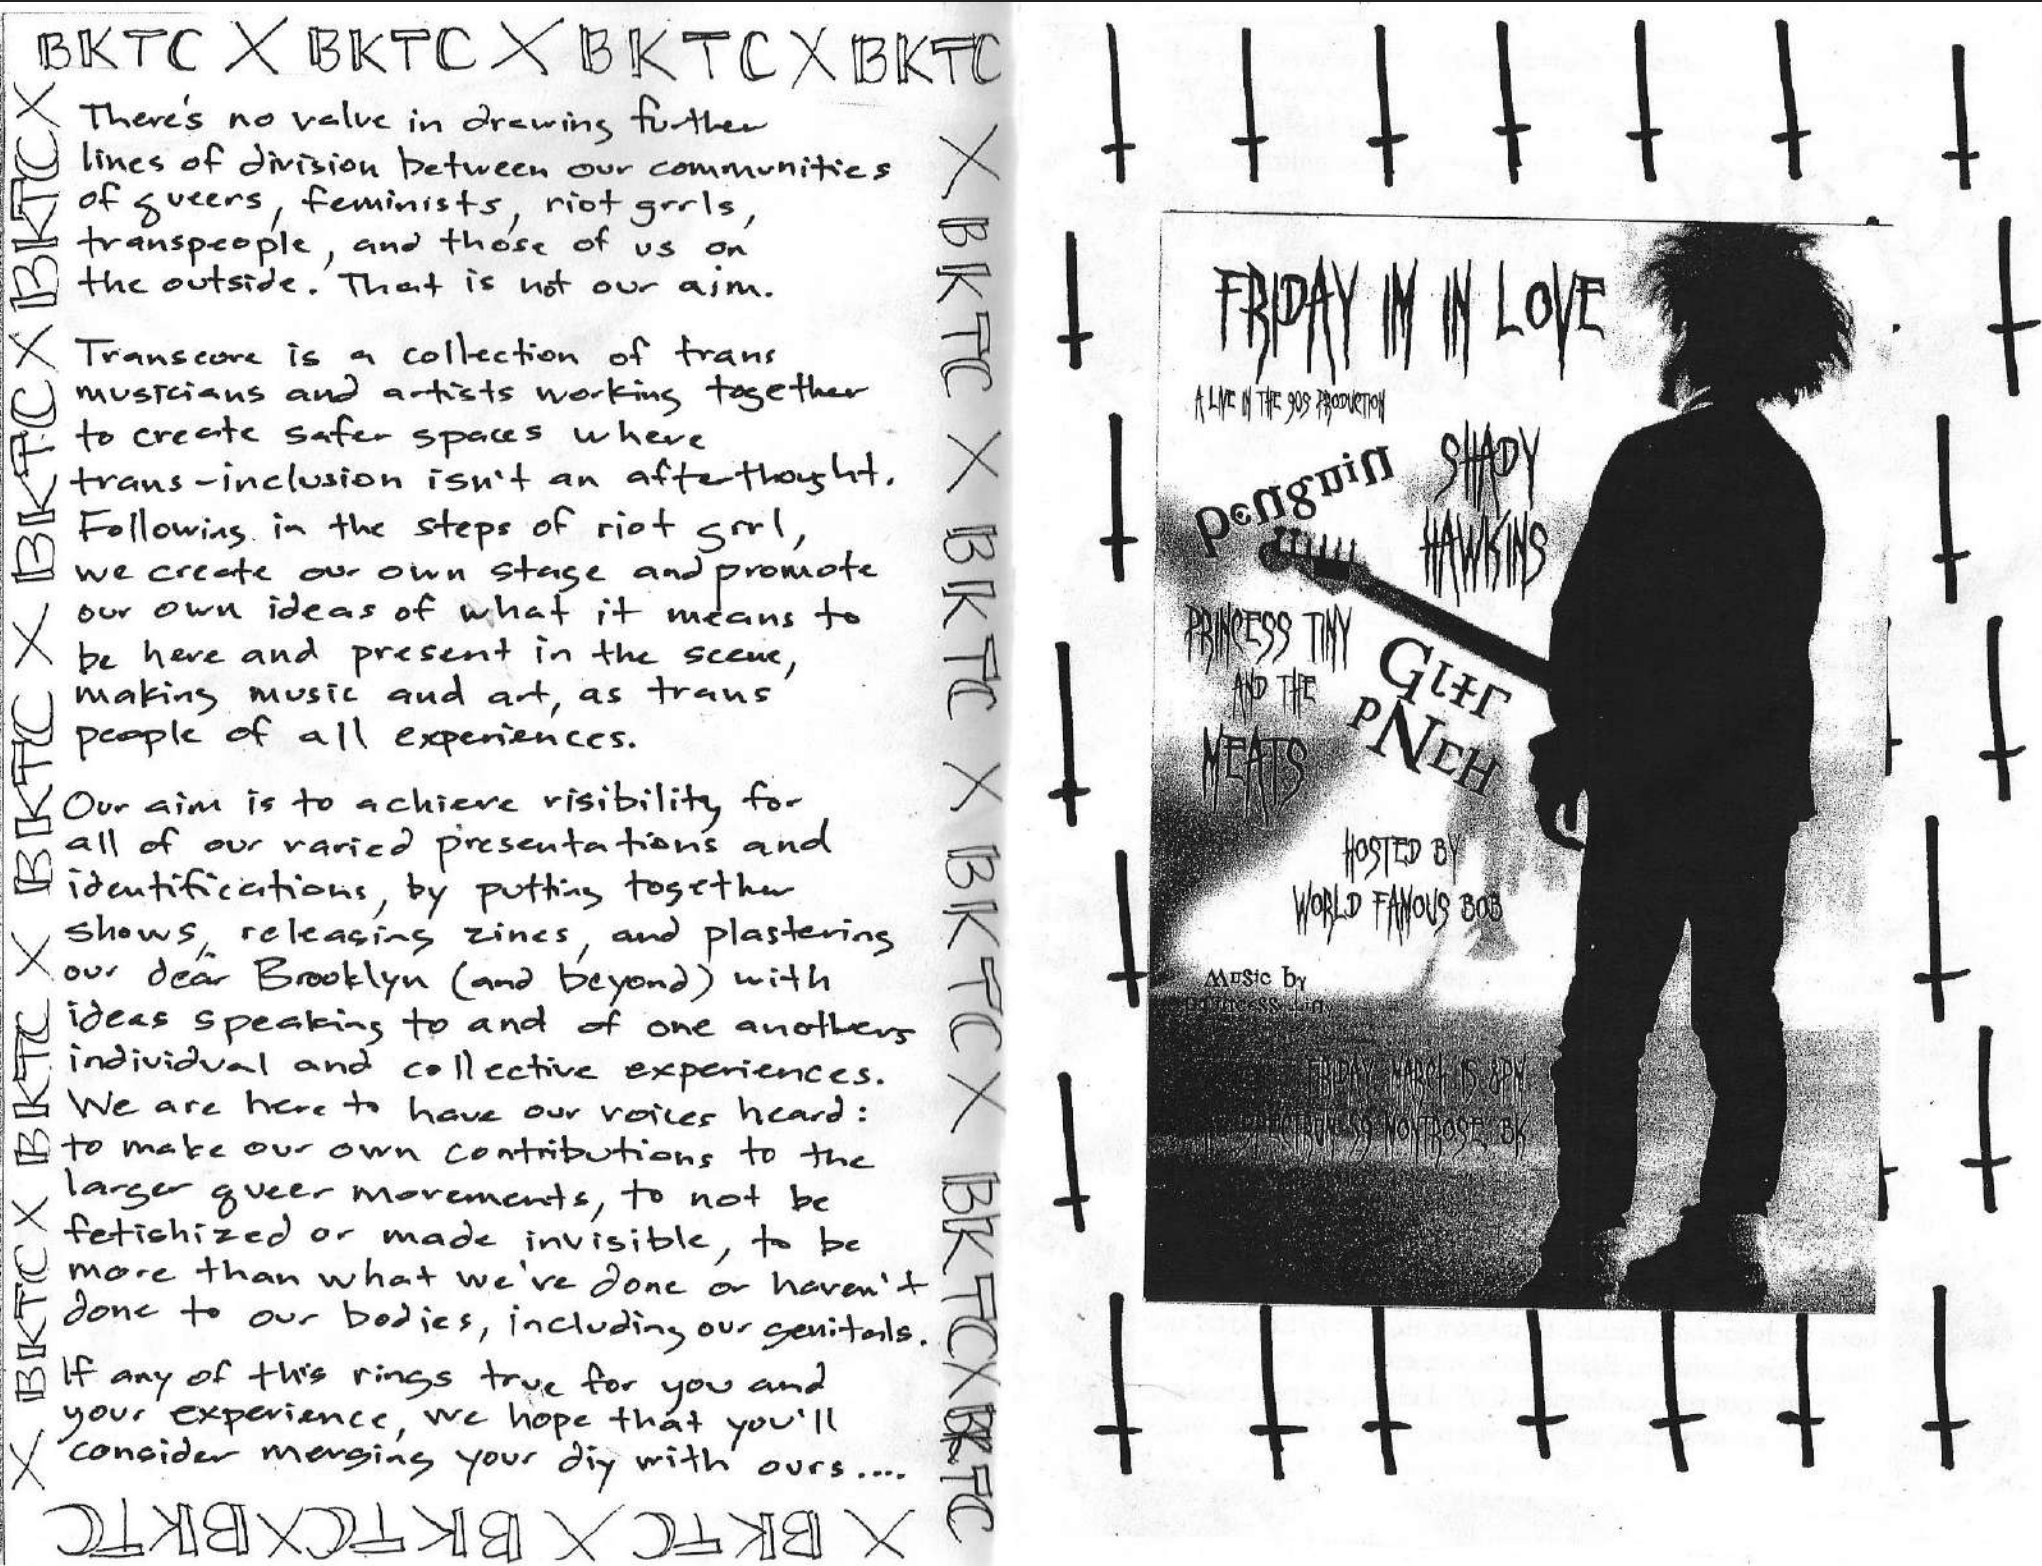 BKTC X BKTC X BKTC X BKTC
There's no value in drawing further
lines of division between our communities
of queers, feminists, riot grrls,
transpeople, and those of us on
the outside. That is not our aim.
Transcore is a collection of trans
musicians and artists working together
to create safer spaces where
trans-inclusion isn't an afterthought.
Following in the steps of riot grrl,
we create our own stage and promote
our own ideas of what it means to
be here and present in the scene,
making music and art, as trans
people of all experiences.
Our aim is to achieve visibility for
all of our varied presentations and
identifications, by putting together
shows, releasing zines, and plastering
our dear Brooklyn (and beyond) with
ideas speaking to and of one anothers
individual and collective experiences.
We are here to have our voices heard:
to make our own contributions to the
larger queer movements, to not be
fetishized or made invisible, to be
more than what we've done or haven't
done to our bodies, including our genitals.
If any of this rings true for you and
your experience, we hope that you'll
consider merging your diy with ours....
X BKTC X BKTC X BKTC X BKTC X BKTC X BKTC
X BKTC X BKTC X BKTC X BKTC X BKTC
X BKTC X BKTC X BKTC
FRIDAY IM IN LOVE
A LIVE IN THE 90S PRODUCTION
penguin
SHADY
HAWKINS
PRINCESS TINY
AND THE
MEATS
HOSTED BY
WORLD FAMOUS BOB
Music by
princess
FRIDAY MARCH 15 8PM
MONTROSE BK